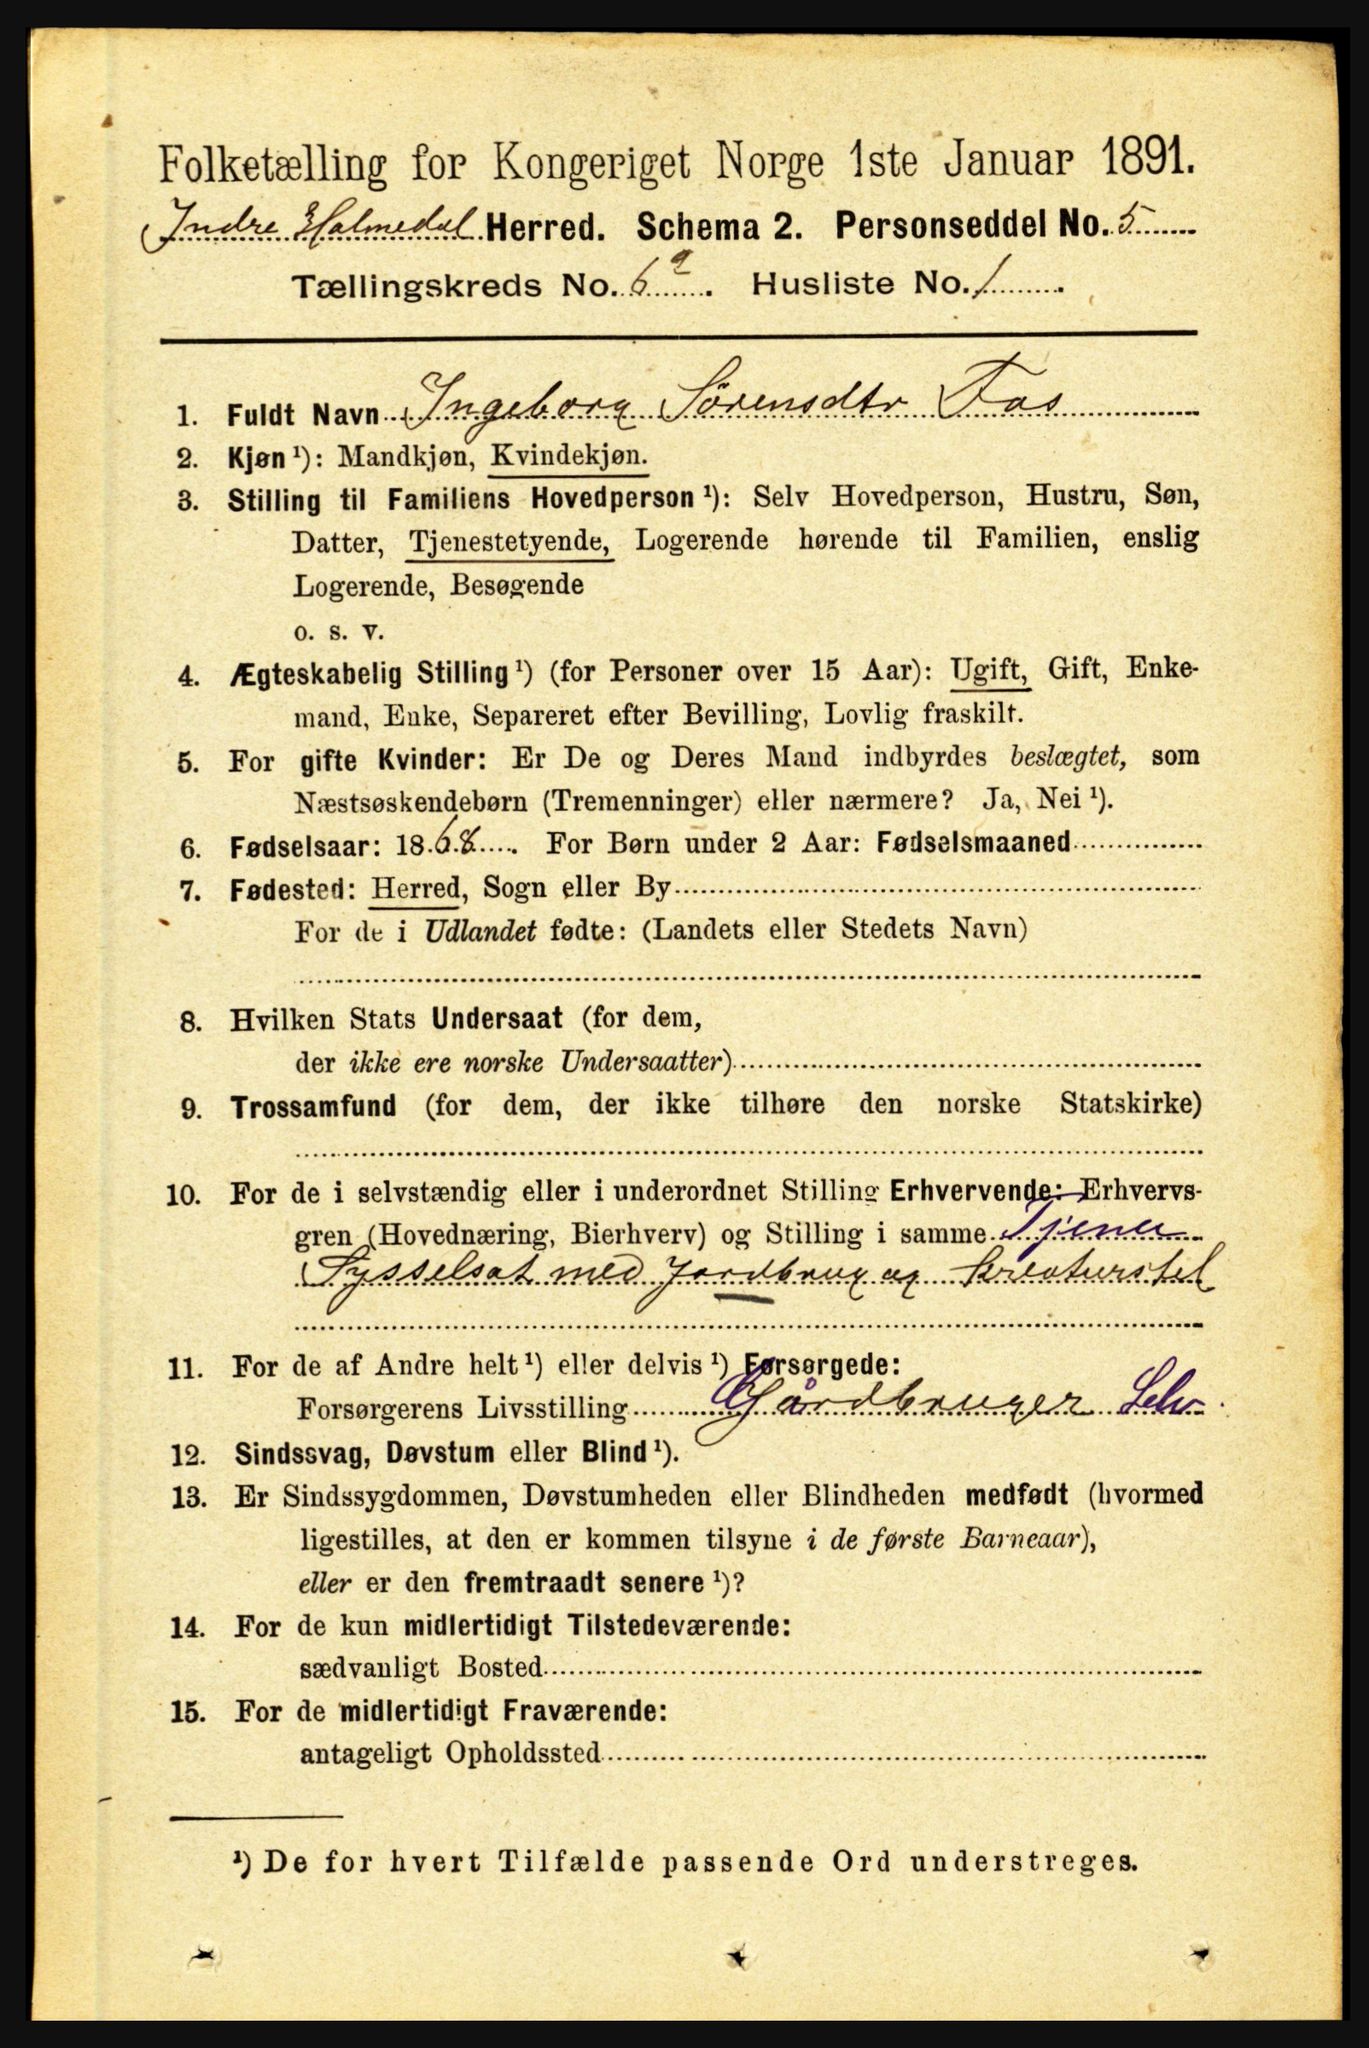 Folketælling for Kongeriget Norge 1ste Januar 1891.
Indre Holmedal Herred. Schema 2. Personseddel No. 5
Tællingskreds No. 6a. Husliste No. 1.
1. Fuldt Navn Ingeborg Sörensdtr Fos
2. Kjøn ¹): Mandkjøn, Kvindekjøn.
3. Stilling til Familiens Hovedperson ¹): Selv Hovedperson, Hustru, Søn,
Datter, Tjenestetyende, Logerende hørende til Familien, enslig
Logerende, Besøgende
o. s. v.
4. Ægteskabelig Stilling ¹) (for Personer over 15 Aar): Ugift, Gift, Enke-
mand, Enke, Separeret efter Bevilling, Lovlig fraskilt.
5. For gifte Kvinder: Er De og Deres Mand indbyrdes beslægtet, som
Næstsøskendebørn (Tremenninger) eller nærmere? Ja, Nei ¹).
6. Fødselsaar: 1868. For Børn under 2 Aar: Fødselsmaaned
7. Fødested: Herred, Sogn eller By
For de i Udlandet fødte: (Landets eller Stedets Navn)
8. Hvilken Stats Undersaat (for dem,
der ikke ere norske Undersaatter)
9. Trossamfund (for dem, der ikke tilhøre den norske Statskirke)
10. For de i selvstændig eller i underordnet Stilling Erhvervende: Erhvervs-
gren (Hovednæring, Bierhverv) og Stilling i samme Tjener
Sysselsat med Jordbrug og Kreaturstel
11. For de af Andre helt ¹) eller delvis ¹) Forsørgede:
Forsørgerens Livsstilling Gårdbruger Selv.
12. Sindssvag, Døvstum eller Blind ¹).
13. Er Sindssygdommen, Døvstumheden eller Blindheden medfødt (hvormed
ligestilles, at den er kommen tilsyne i de første Barneaar),
eller er den fremtraadt senere ¹)?
14. For de kun midlertidigt Tilstedeværende:
sædvanligt Bosted
15. For de midlertidigt Fraværende:
antageligt Opholdssted
¹) De for hvert Tilfælde passende Ord understreges.